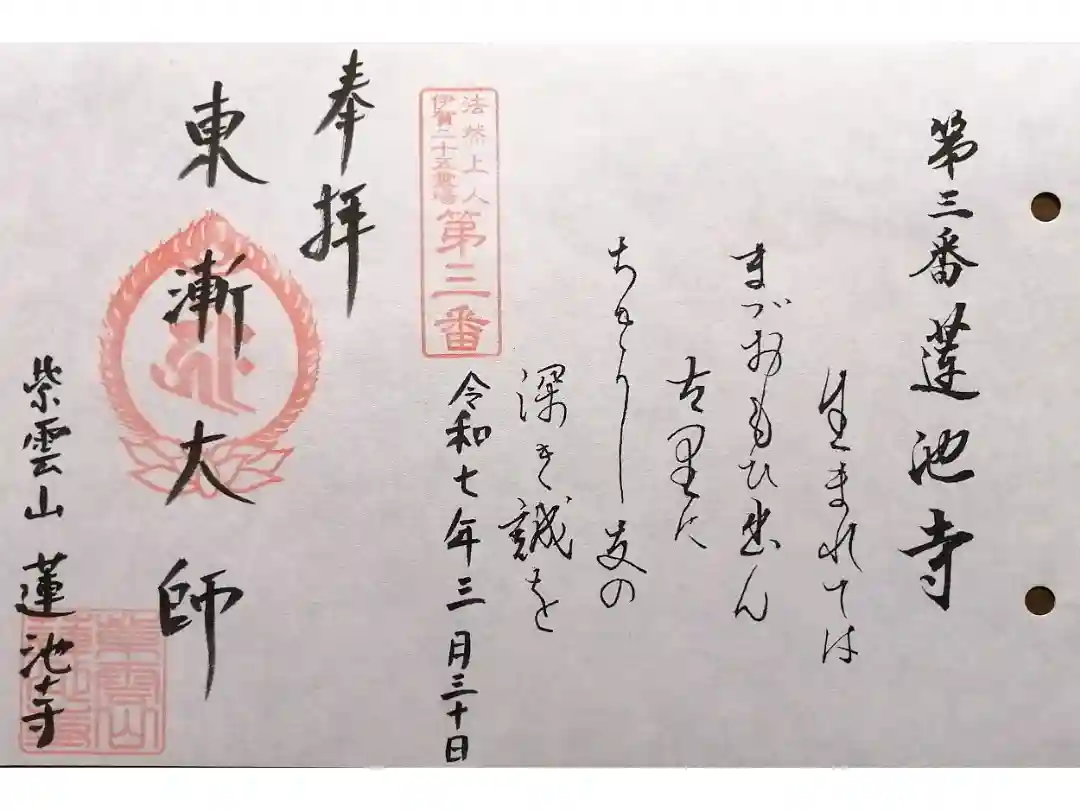 第三番 蓮池寺
生まれては
まづおもひ出ん
古里に
ちきりし友の
深き誠を
法然上人
伊賀二十五霊場
第三番
令和七年三月三十日
奉拝
東漸大師
紫雲山 蓮池寺
紫雲山
蓮池寺